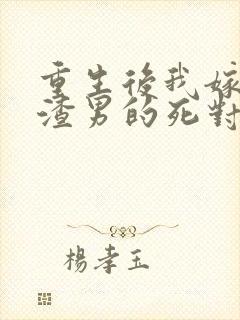 重生後我嫁
渣男的死對
楊孝玉